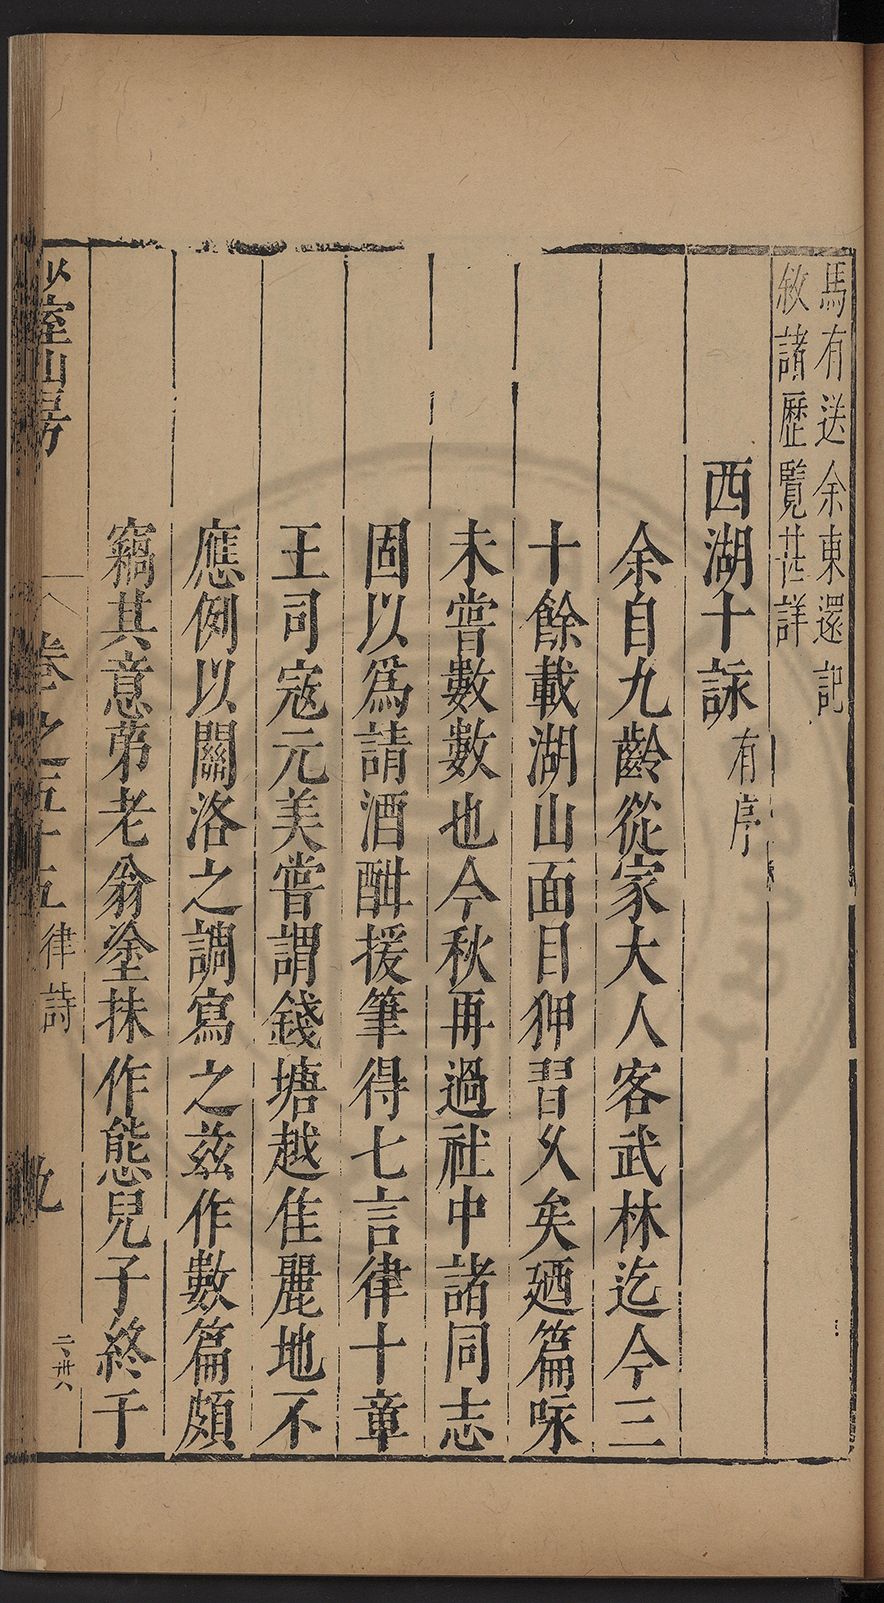 馬有送余東還記
敘諸歷覽甚詳
西湖十詠有序
余自九齡從家大人客武林迄今三
十餘載湖山面目狎習乆矣廼篇咏
未嘗數數也今秋再過社中諸同志
固以爲請酒酣援筆得七言律十章
王司寇元美嘗謂錢塘越佳麗地不
應例以關洛之調寫之茲作數篇頗
竊其意苐老翁塗抹作態兒子終于
少室山房
卷之五十五 律詩
九
二、卅八